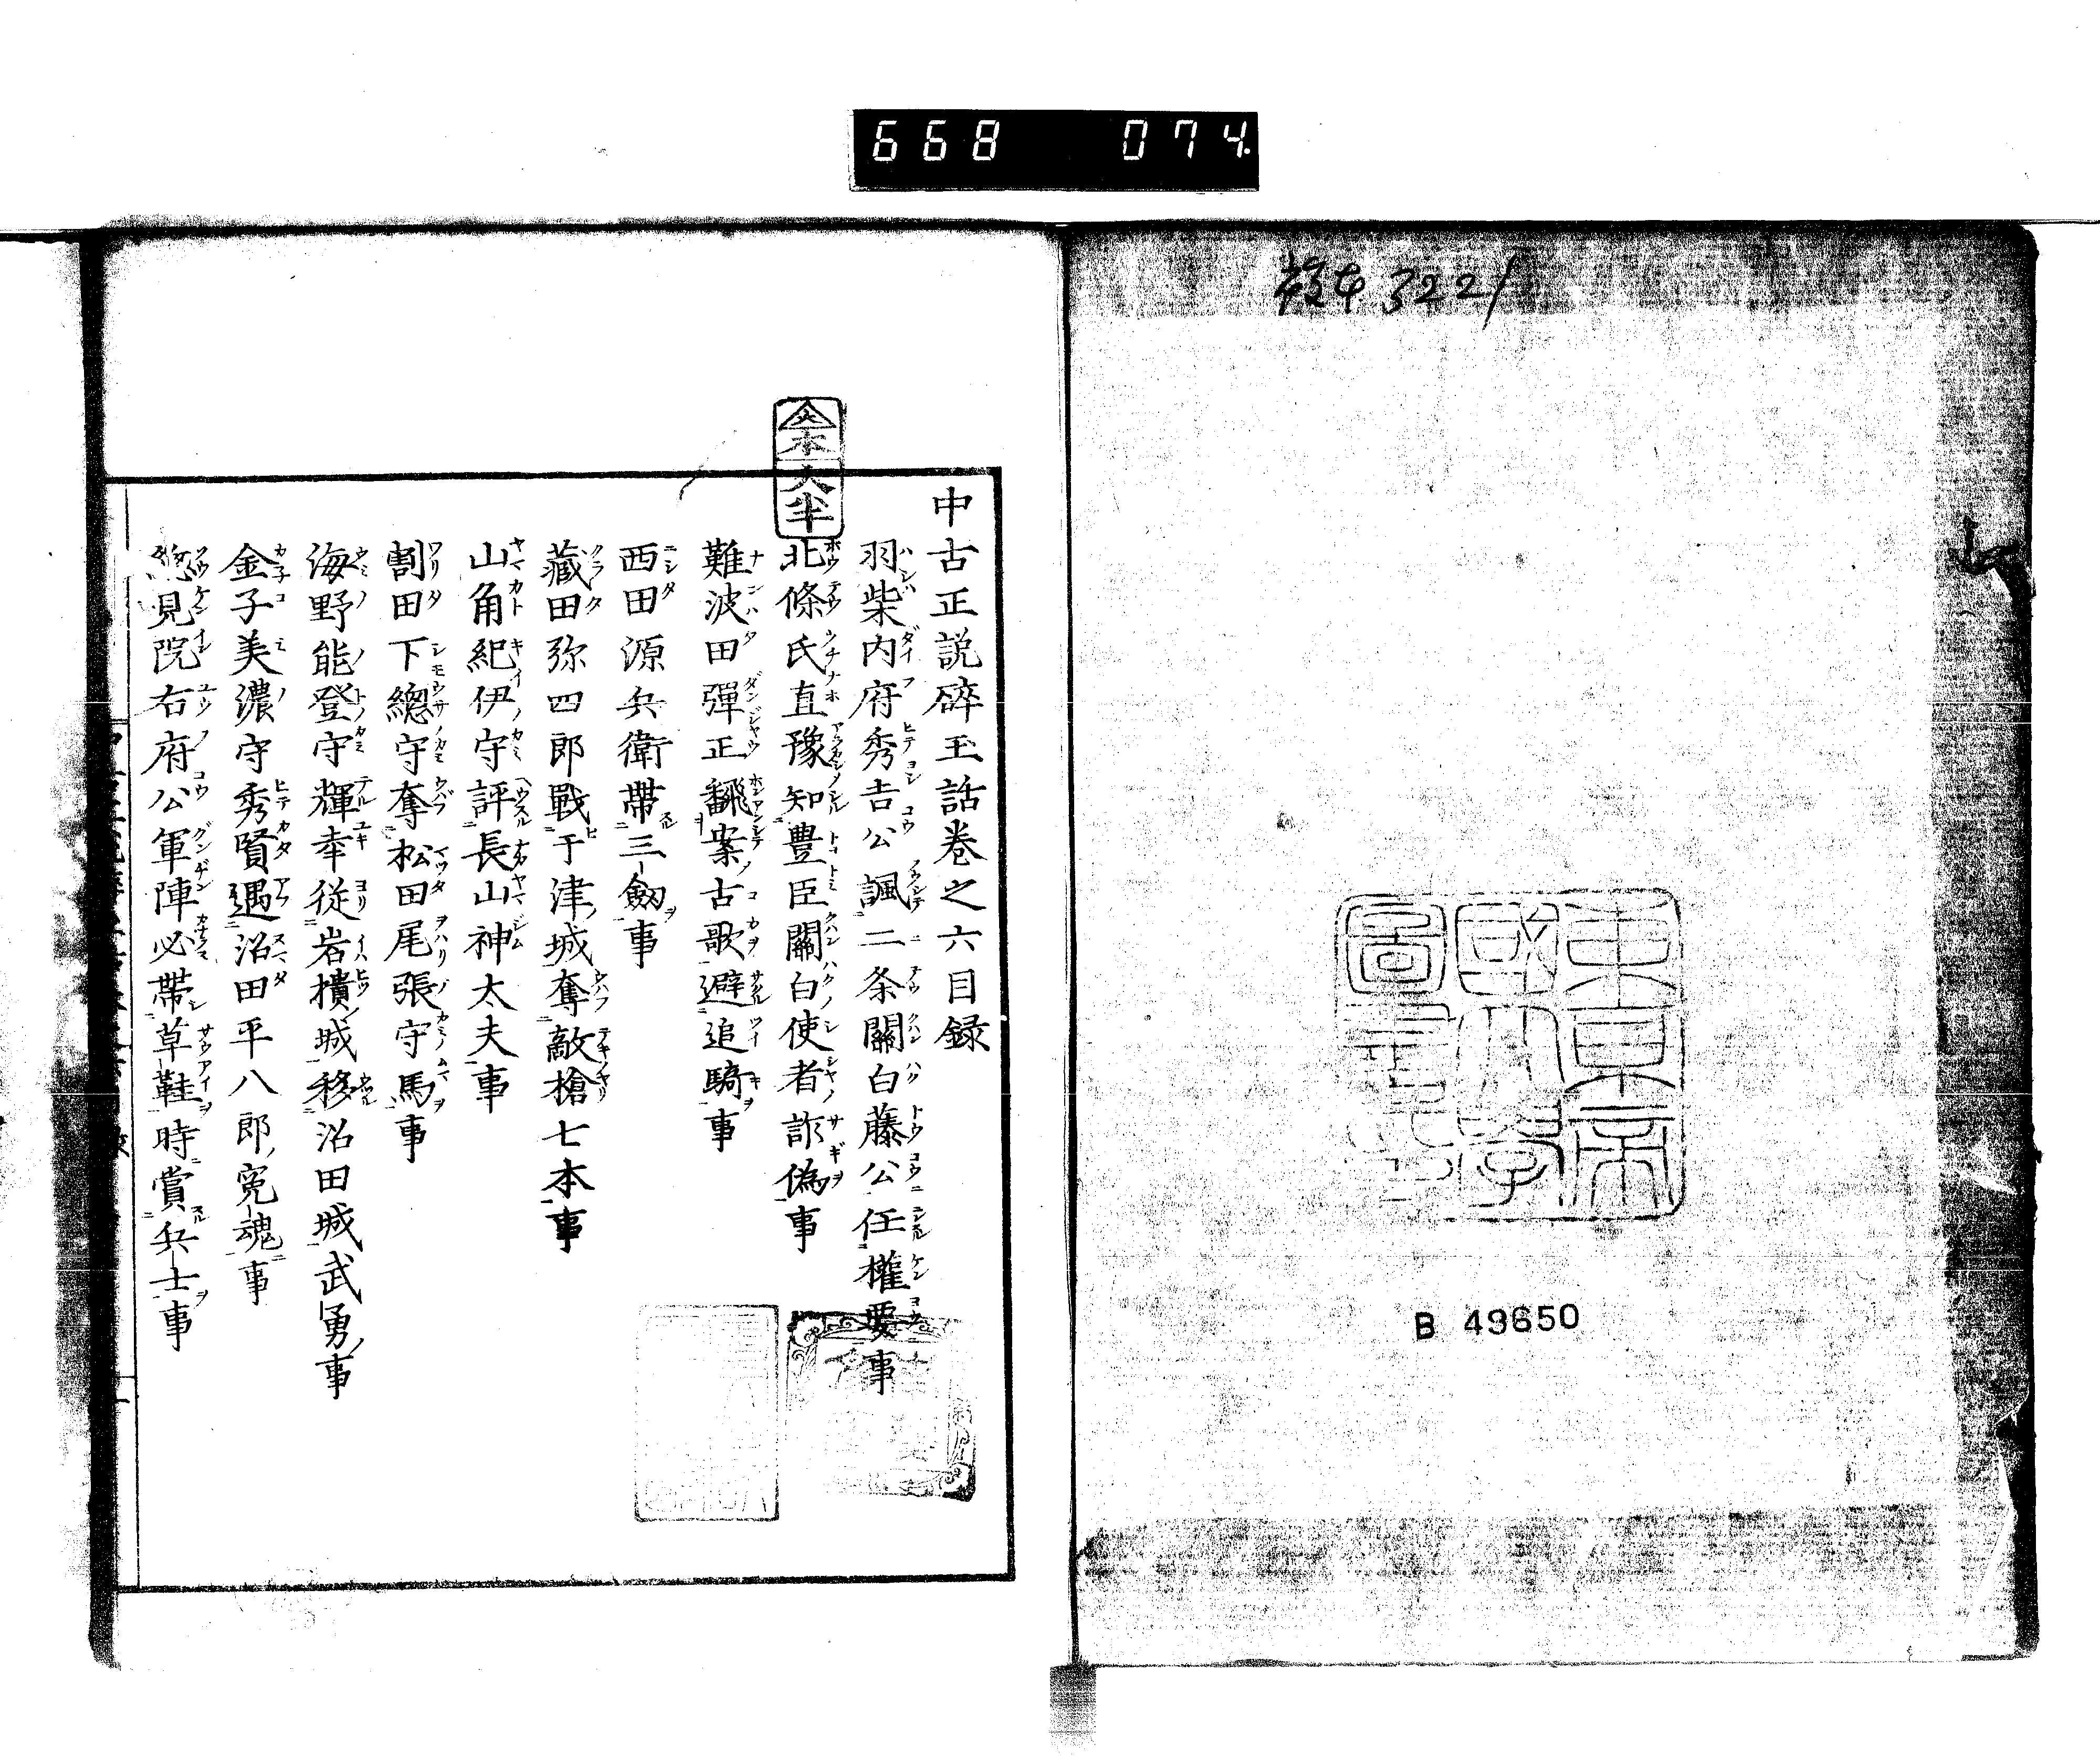 668 074
複本 3221
東京帝
國大學
圖書印
B 49650
本
大
半
中古正説碎玉話巻之六目録
羽柴内府秀吉公諷二条關白藤公任權要事
北條氏直豫知豊臣關白使者詐偽事
難波田彈正飜案古歌避追騎事
西田源兵衛帶三劔事
藏田弥四郎戰于津城奪敵槍七本事
山角紀伊守評長山神太夫事
割田下總守奪松田尾張守馬事
海野能登守輝幸従岩櫃城移沼田城武勇事
金子美濃守秀賢遇沼田平八郎寃魂事
總見院右府公軍陣必帶草鞋時賞兵士事